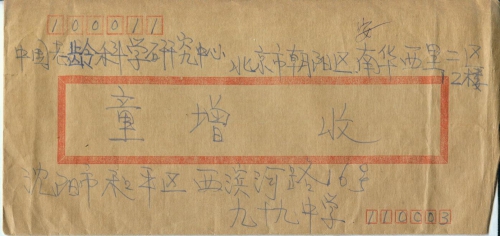 100011
安
中国老龄科学研究中心 北京市朝阳区南华西里二区
12楼
童增 收
沈阳市和平区西滨河路16号
九十九中学
110003